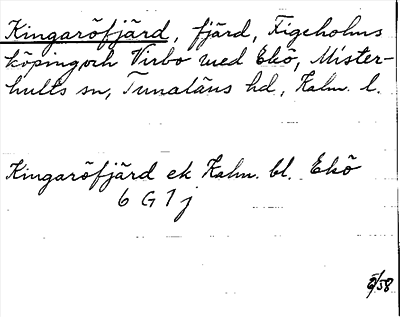 Kingaröfjärd, fjärd, Figeholms
köping och Virbo med Ekö, Mister-
hults sn, Tunaläns hd, Kalm. l.
Kingaröfjärd ek Kalm. bl. Ekö
6 G 7 j